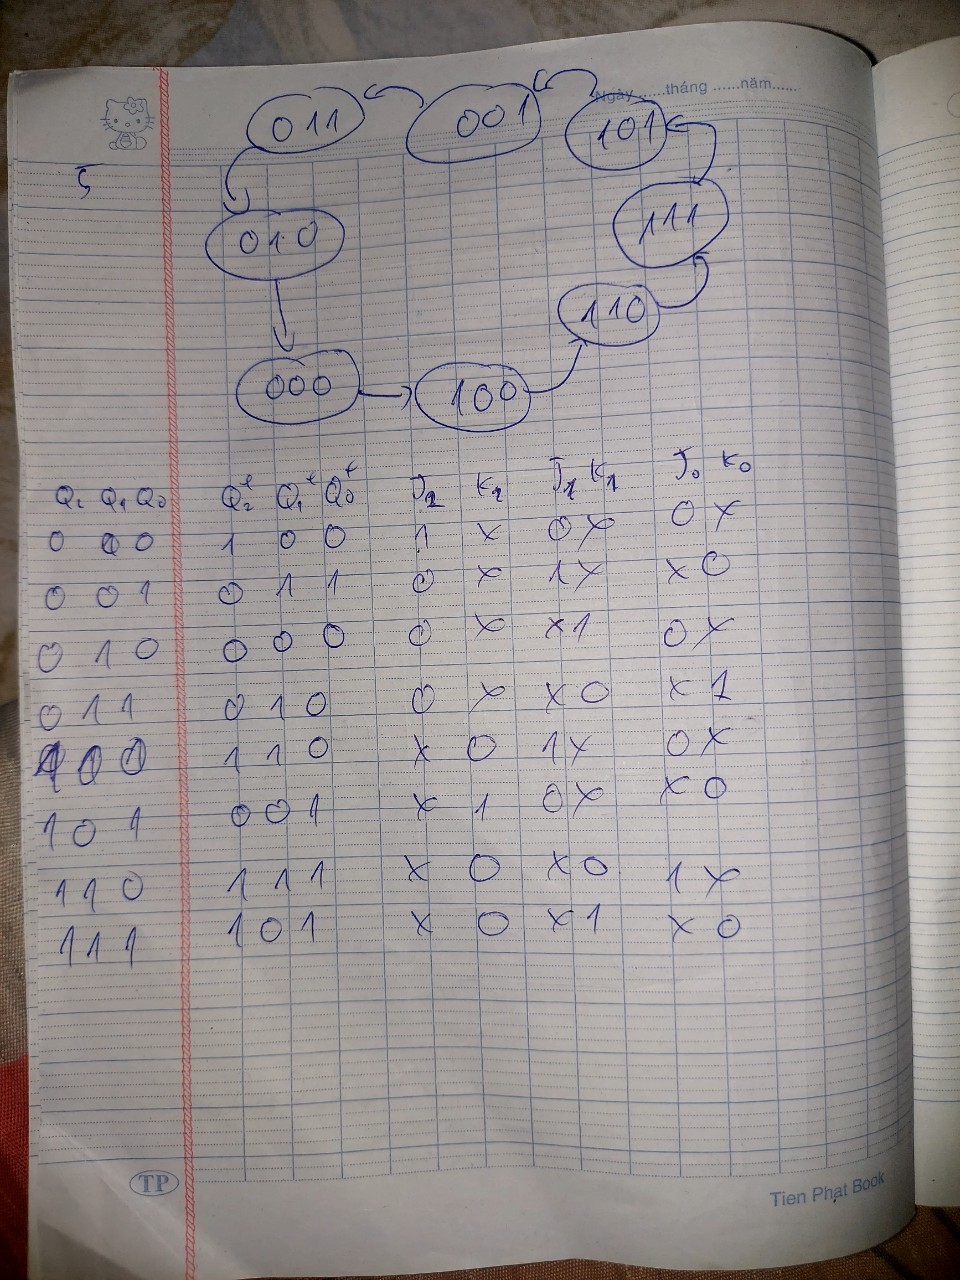 Ngày ......tháng ......năm......
011 001 101
5
010 111
110
000 100
Q₂ Q₁ Q₀ Q₂⁺ Q₁⁺ Q₀⁺ J₂ K₂ J₁ K₁ J₀ K₀
0 0 0 1 0 0 1 x 0 x 0 x
0 0 1 0 1 1 0 x 1 x x 0
0 1 0 0 0 0 0 x x 1 0 x
0 1 1 0 1 0 0 x x 0 x 1
1 0 0 1 1 0 x 0 1 x 0 x
1 0 1 0 0 1 x 1 0 x x 0
1 1 0 1 1 1 x 0 x 0 1 x
1 1 1 1 0 1 x 0 x 1 x 0
TP
Tien Phat Book